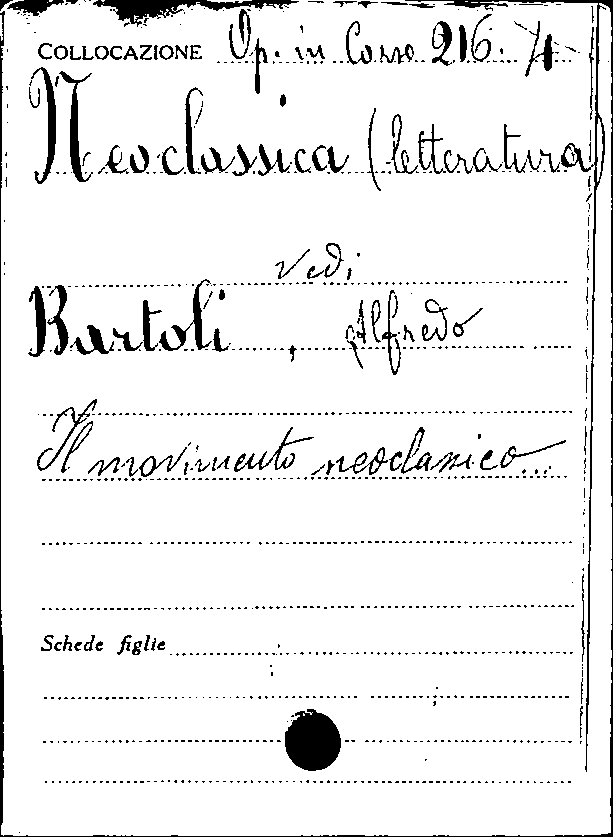 COLLOCAZIONE Op. in Corso 216. 4
Neoclassica (letteratura)
Vedi
Bartoli, Alfredo
Il movimento neoclassico...
Schede figlie